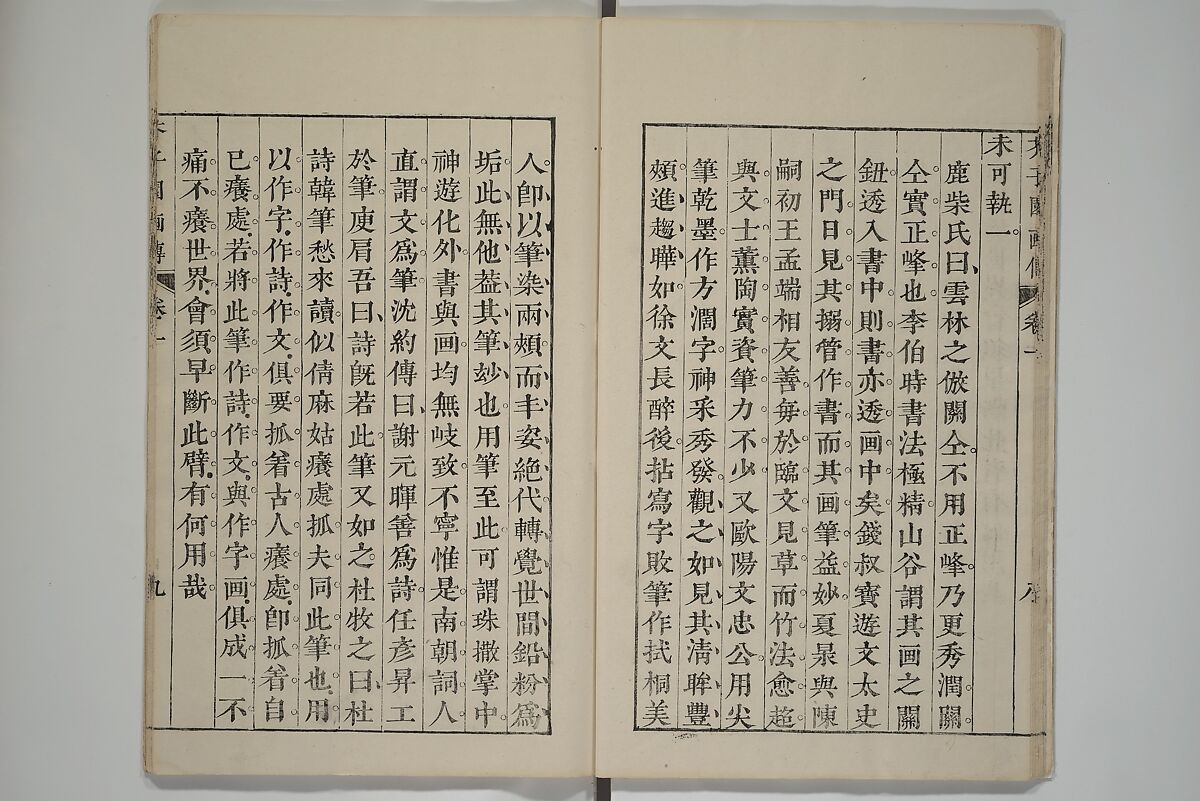 芥子園画傳 卷一 八
未可執一
鹿柴氏曰雲林之倣關仝不用正峰乃更秀潤關
仝實正峰也李伯時書法極精山谷謂其画之關
鈕透入書中則書亦透画中矣錢叔寶遊文太史
之門日見其搦管作書而其画筆益妙夏㫤與陳
嗣初王孟端相友善每於臨文見草而竹法愈超
與文士薰陶實資筆力不少又歐陽文忠公用尖
筆乾墨作方濶字神采秀發觀之如見其清眸豐
頰進趨曄如徐文長醉後拈寫字敗筆作拭桐美
人卽以筆染兩頰而丰姿絕代轉覺世間鉛粉爲
垢此無他葢其筆玅也用筆至此可謂珠撒掌中
神遊化外書與画均無岐致不寧惟是南朝詞人
直謂文爲筆沈約傳曰謝元暉善爲詩任彥昇工
於筆庾肩吾曰詩旣若此筆又如之杜牧之曰杜
詩韓筆愁來讀似倩麻姑癢處抓夫同此筆也用
以作字作詩作文俱要抓着古人癢處卽抓着自
已癢處若將此筆作詩作文與作字画俱成一不
痛不癢世界會須早斷此臂有何用哉
芥子園画傳 卷一 九